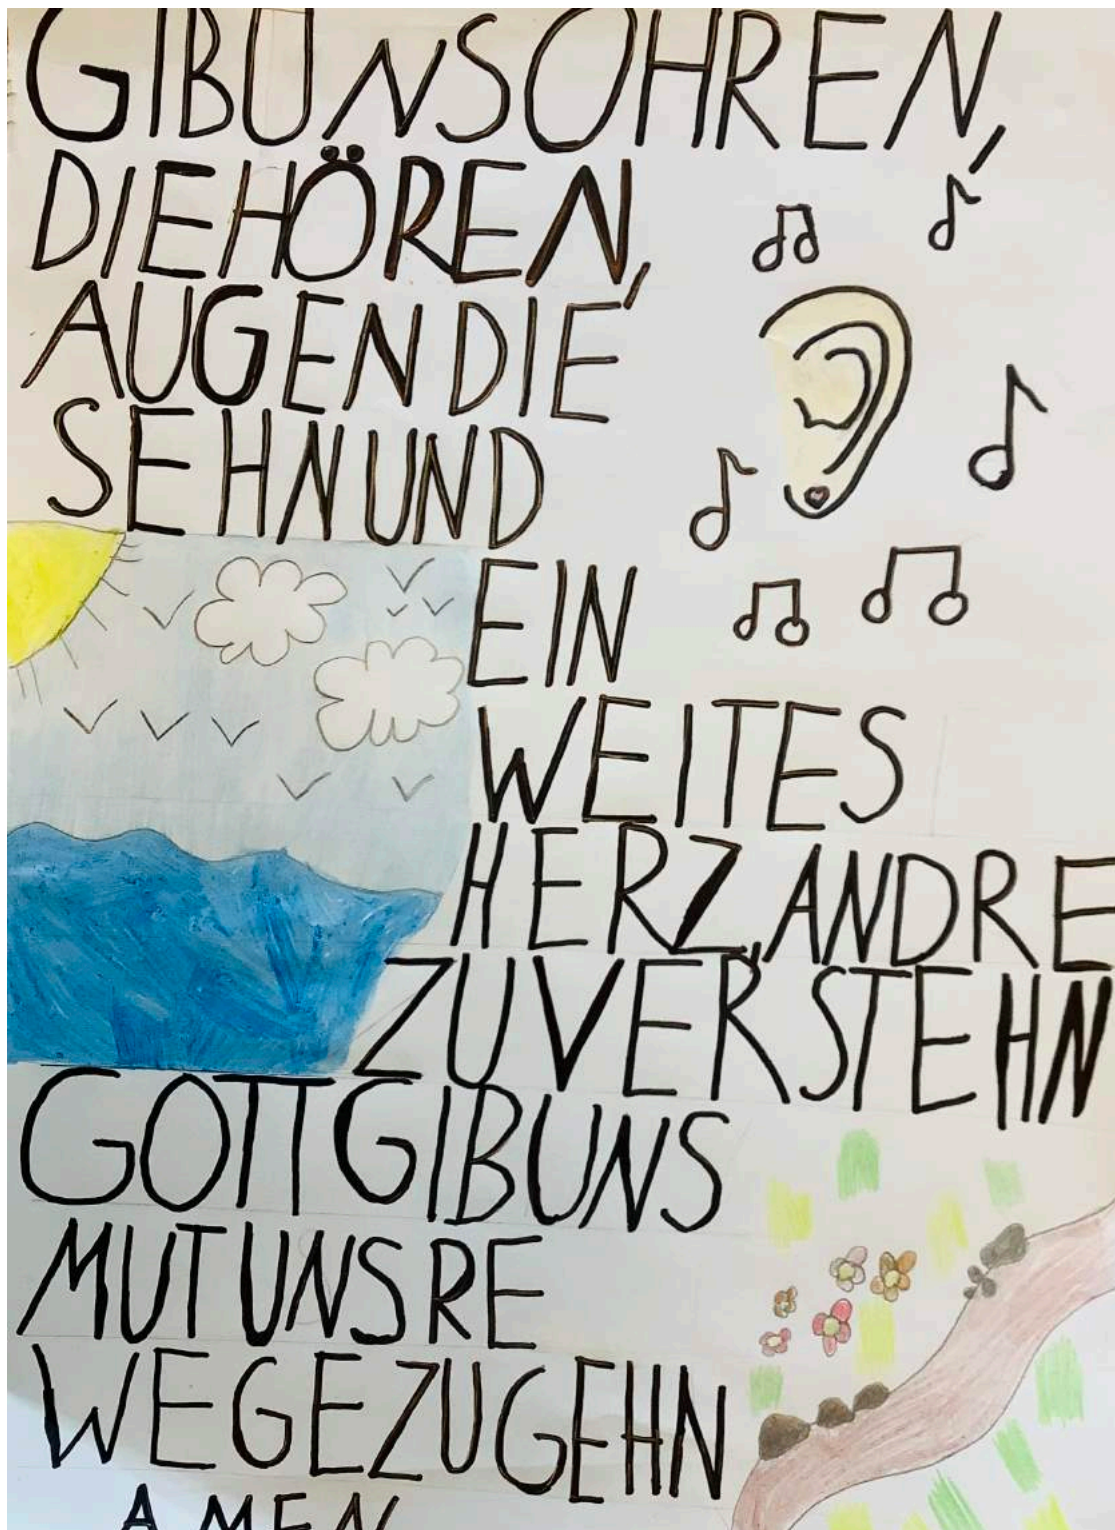 GIB UNS OHREN,
DIE HÖREN,
AUGEN DIE
SEHN UND
EIN
WEITES
HERZ, ANDRE
ZU VERSTEHN
GOTT GIB UNS
MUT UNSRE
WEGE ZU GEHN
AMEN